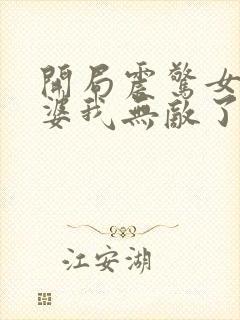 開局震驚女
婆我無敵了
江安湖